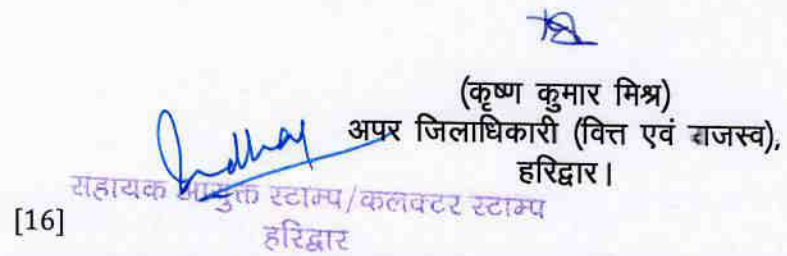 (कृष्ण कुमार मिश्र)
अपर जिलाधिकारी (वित्त एवं राजस्व),
हरिद्वार।
सहायक आयुक्त स्टाम्प/कलक्टर स्टाम्प
हरिद्वार
[16]